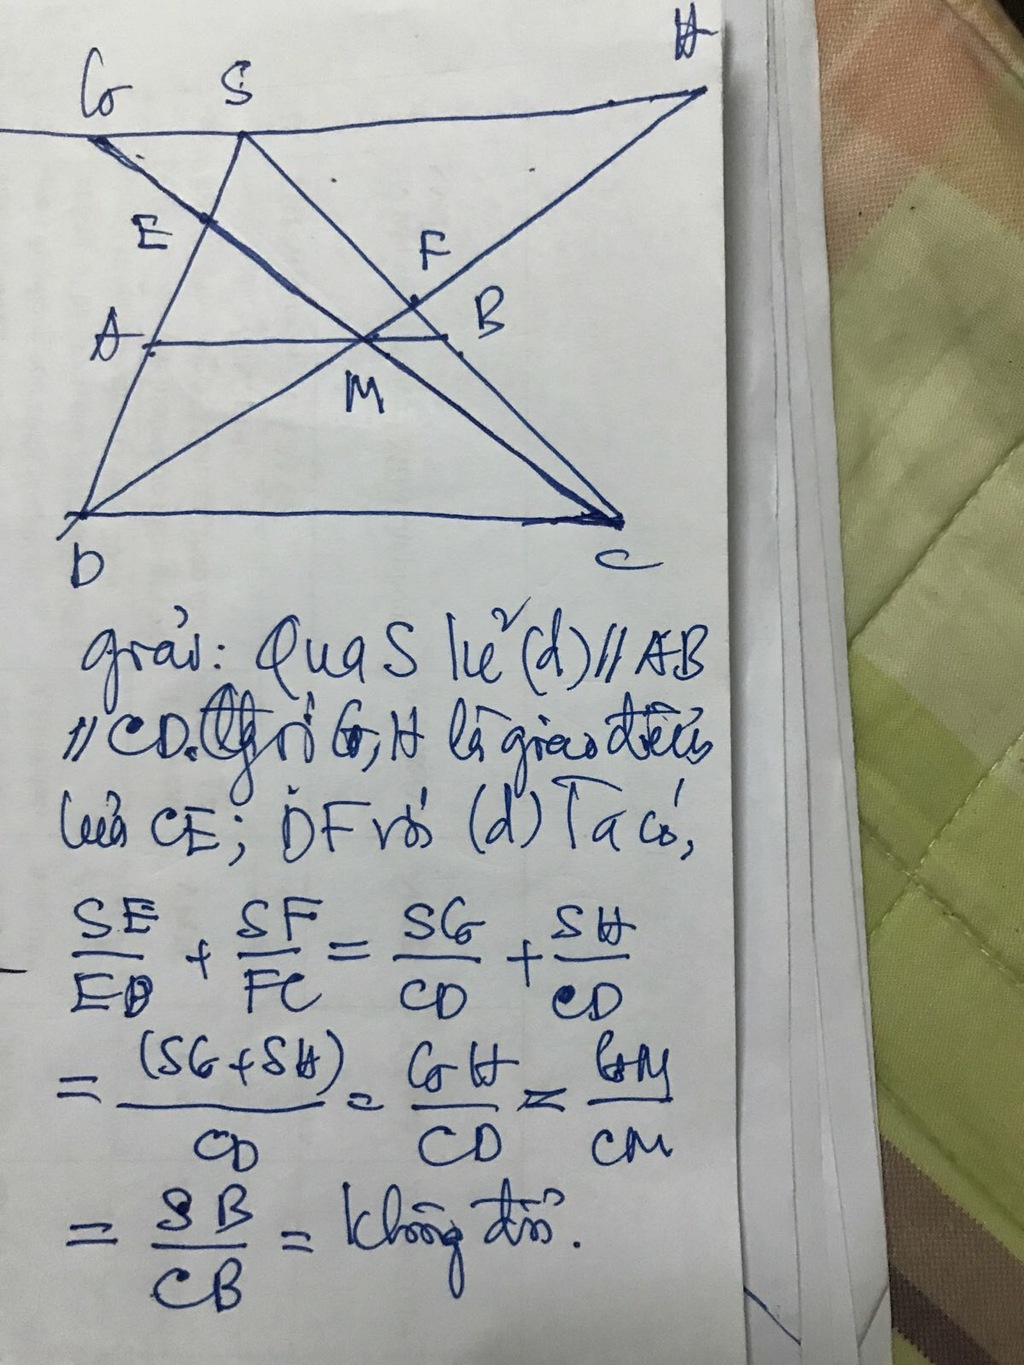 G S H
E F
A B
M
D C
giải: Qua S kẻ (d) // AB
// CD. Gọi G, H là giao điểm
của CE; DF với (d) Ta có,
SE/ED + SF/FC = SG/CD + SH/CD
= (SG + SH)/CD = GH/CD = GM/CM
= SB/CB = không đổi.